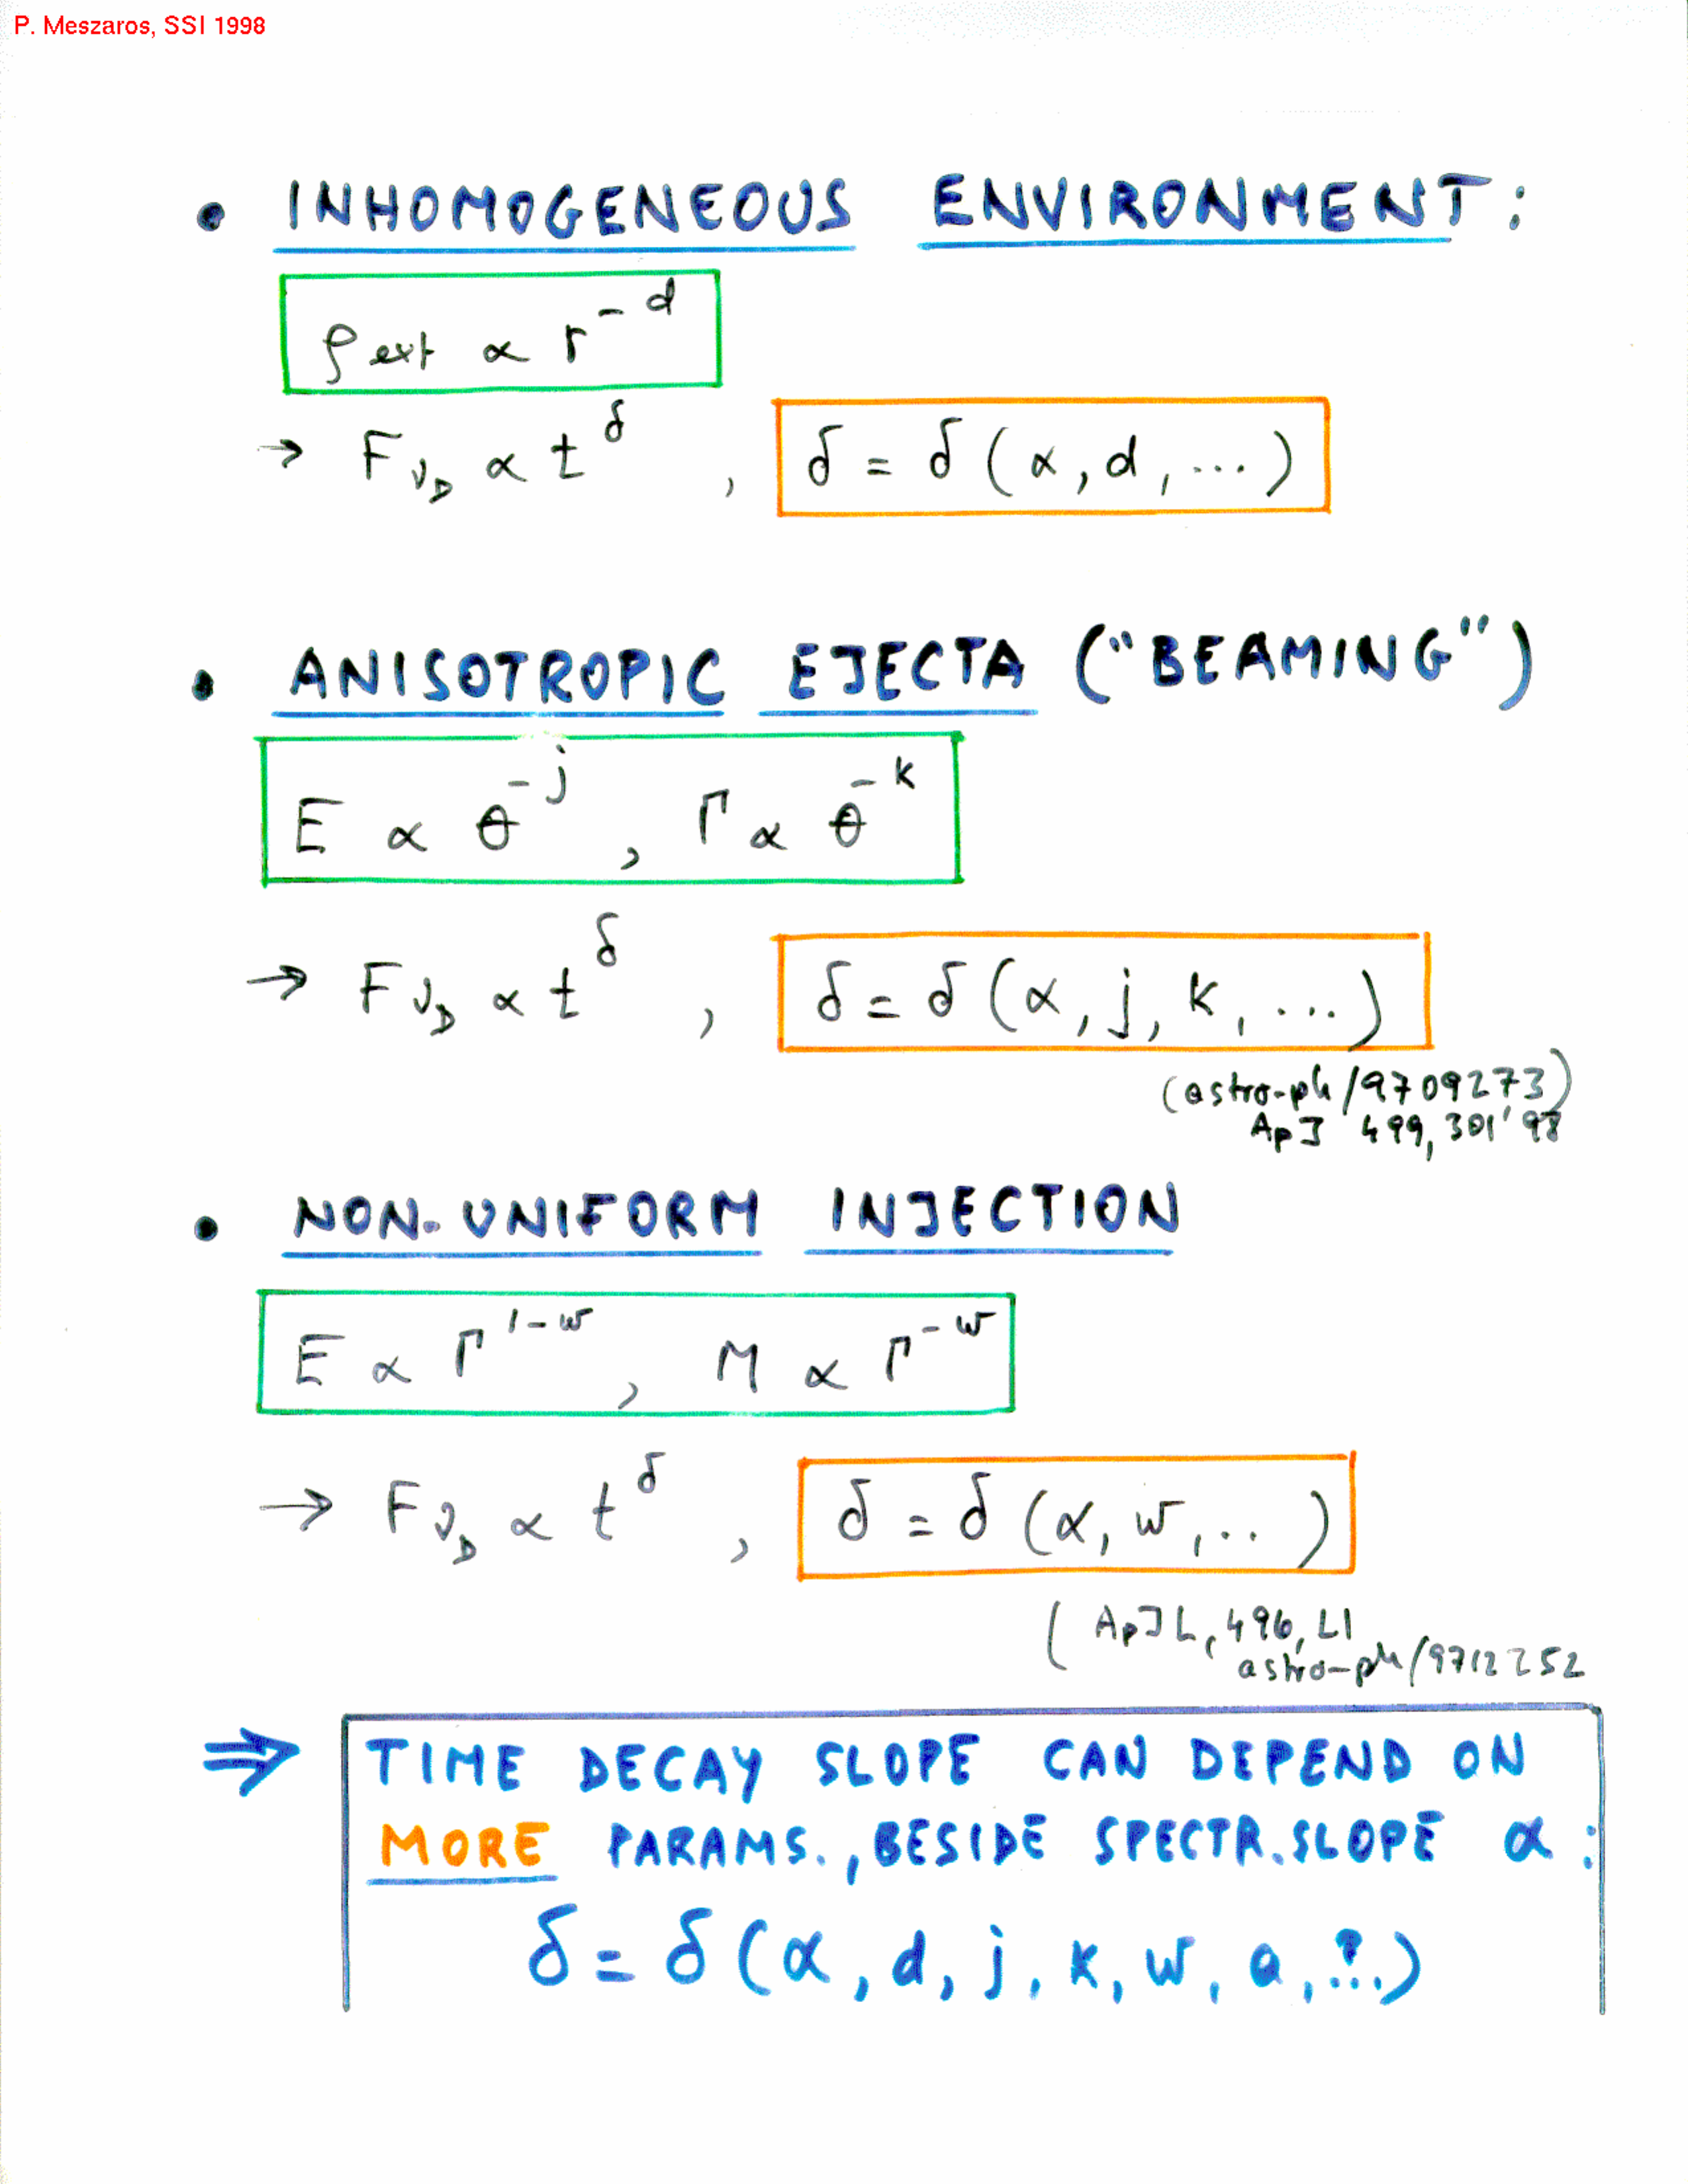 P. Meszaros, SSI 1998
• INHOMOGENEOUS ENVIRONMENT:
ρ ext ∝ r^-d
→ F_ν_D ∝ t^δ , δ = δ (α, d, ...)
• ANISOTROPIC EJECTA ("BEAMING")
E ∝ θ^-j , Γ ∝ θ^-k
→ F_ν_D ∝ t^δ , δ = δ (α, j, k, ...)
(astro-ph/9709273)
ApJ 499, 301 '98
• NON-UNIFORM INJECTION
E ∝ Γ^1-w , M ∝ Γ^-w
→ F_ν_D ∝ t^δ , δ = δ (α, w, ..)
( ApJL, 496, L1
astro-ph/9712252
⇒ TIME DECAY SLOPE CAN DEPEND ON
MORE PARAMS., BESIDE SPECTR. SLOPE α :
δ = δ (α, d, j, k, w, a, ?..)